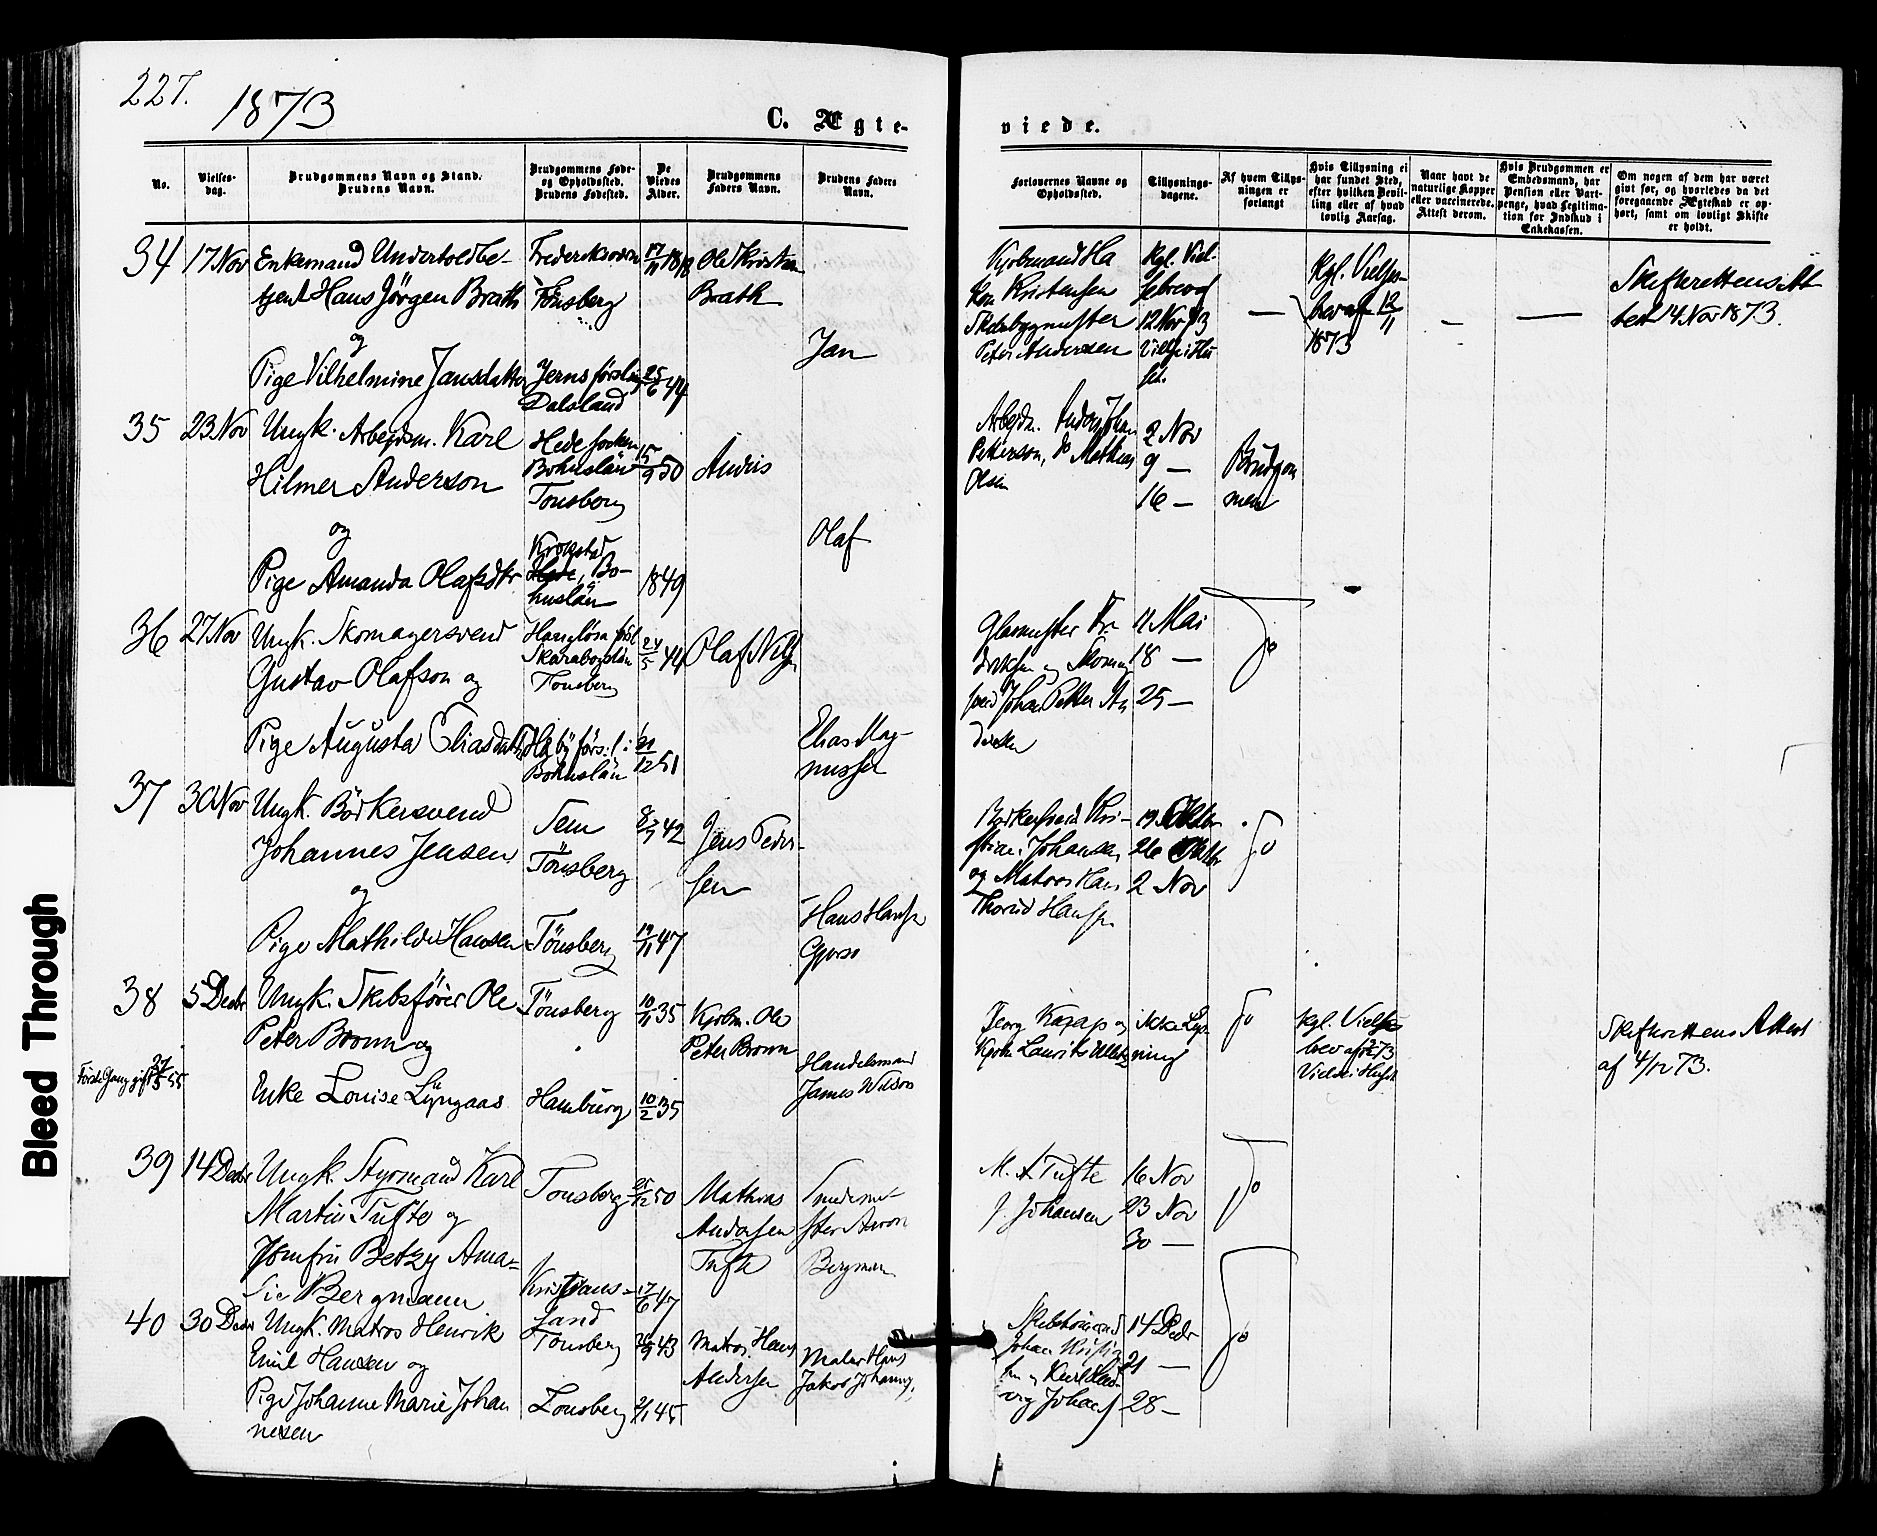 227.
1873
C. Ægte-
viede.
No.
Vielses-
dag.
Brudgommens Navn og Stand.
Brudens Navn.
Brudgommens Føde-
og Opholdssted.
Brudens Fødested.
De
Viedes
Alder.
Brudgommens
Faders Navn.
Brudens Faders
Navn.
Forlovernes Navne og
Opholdssted.
Tillysnings-
dagene.
Af hvem Tillys-
ningen er
forlangt
Hvis Tillysning ei
har fundet Sted,
efter hvilken Bevil-
ling eller af hvad
lovlig Aarsag.
Naar havt de
naturlige Kopper
eller vaccinerede.
Attest derom.
Hvis Brudgommen er
Embedsmand, har
Pension eller Vart-
penge, hvad Legitima-
tion for Indskud i
Enkekassen.
Om nogen af dem har været
givt før, og hvorledes da det
foregaaende Ægteskab er op-
hørt, samt om lovligt Skifte
er holdt.
34 17 Nov Enkemand Undertoldbe-
tjent Hans Jörgen Brath
og
Pige Vilhelmine Jansdatter
Tönsberg
Dalsland
17/11 1818
25/6 44
Ole Kristian
Brath
Jan
Kjöbmand Ha
kon Kristensen
Skibsbygmester
Peter Andersen
Kgl. Viel-
sebrev af
12 Nov 73
—
Kgl. Vielses-
brev af 12/11
1873
—
—
Skifterettens At
test 14 Nov 1873.
35 23 Nov Ungk. Arbejdsm. Karl
Hilmer Anderson
og
Pige Amanda Olafsdtr
Hede
Bohuslän
Tonsberg
Krokstad
Hede, Bo-
huslän
15/9 50
1849
Andris
Olaf
Arbejdm. Anders Johan
Petterson, do Mathias
Olsen
2 Nov
9 —
16 —
Brudgom
men
36 27 Nov Ungk. Skomagersvend
Gustav Olafson og
Pige Augusta Eliasdatter
Skaraborglän
Tonsberg
Bohuslän
24/5 44
21/12 51
Olaf Nils
Elias Mag-
nussen
Glasmester
Johan Petter
11 Mai
18 —
25 —
do
37 30 Nov Ungk. Bödkersvend
Johannes Jensen
og
Pige Mathilde Hansen
Sem
Tönsberg
Tönsberg
8/7 42
19/11 47
Jens Peder-
sen
Hans Hansen
Bödkersvend Kri-
stian Johansen
og Matros Hans
Thorvid Hansen
19 Oktbr
26 Oktbr
2 Nov
do
38 5 Decbr Ungk. Skibsförer Ole
Peter Bromm og
Enke Louise Lyngaas
Förste Gang gift 27/5 55
Tönsberg
Hamburg
10/11 35
10/2 35
Kjøbm. Ole
Peter Bromm
Handelsmand
James Wilson
Georg og
Kjøbm Laurits
ikke Lys-
ning
do
Kgl. Vielses
brev af
Viede i Huset
Skifterettens Attest
af 4/12 73.
39 14 Decbr Ungk. Styrmand Karl
Martin Tufte og
Jomfru Betzy Ama-
lie Bergmann
Tonsberg
Kristians-
sand
25/12 50
17/6 47
Mathias
Andersen
Tufte
Smedeme-
ster Aron
Bergman
M. A Tufte
J. Johansen
16 Nov
23 Nov
30 —
do
40 30 Decbr Ungk. Matros Henrik
Emil Hansen og
Pige Johanne Marie Johan
nesen
Tonsberg
Tonsberg
43
2/1 45
Matros Hans
Andersen
Maler Hans
Jakob Johannes
Johan Kristia
n og Karl Lud-
vig Johans
14 Decbr
21 —
28 —
do
Bleed Through